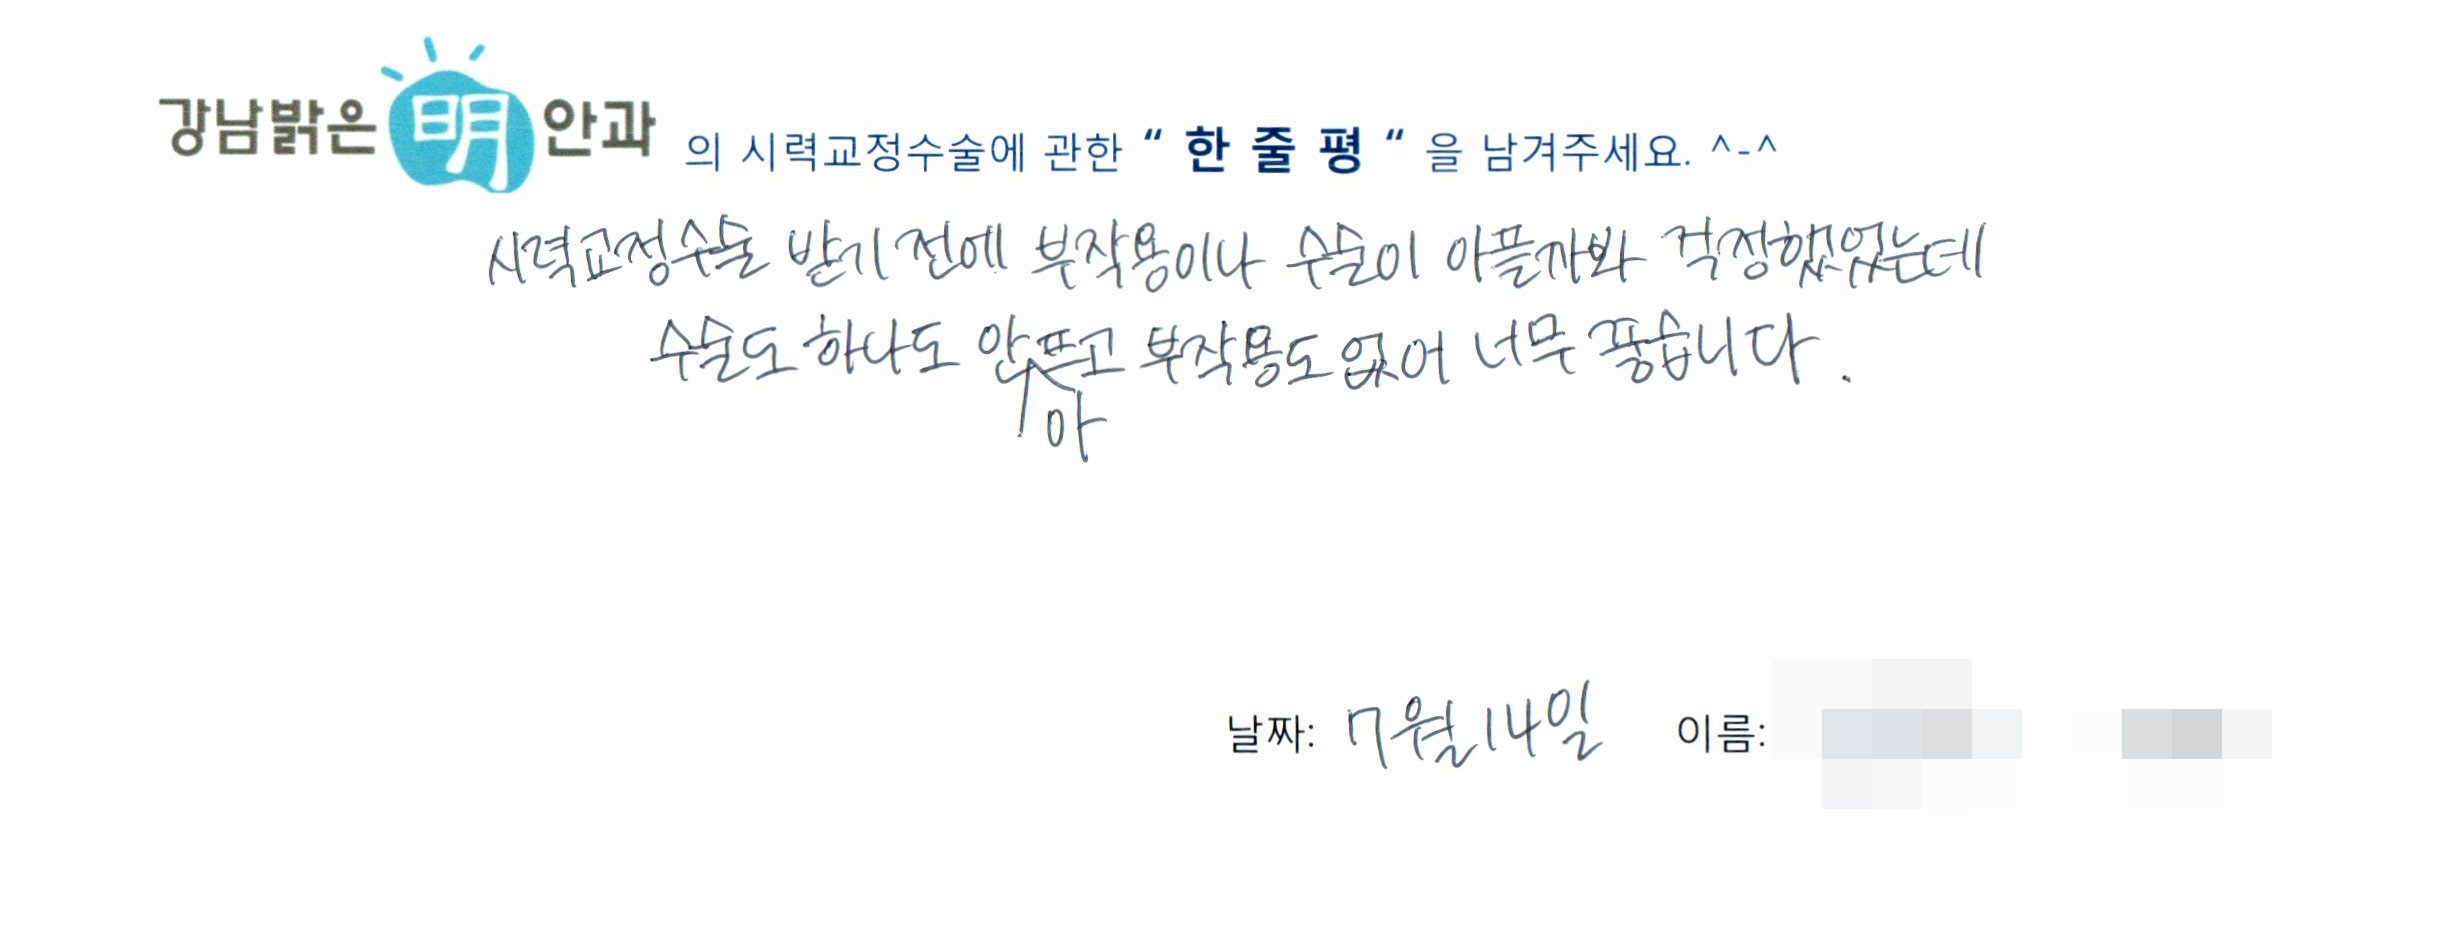 강남밝은 明 안과 의 시력교정수술에 관한 “ 한 줄 평 “ 을 남겨주세요. ^-^
시력교정수술 받기 전에 부작용이나 수술이 아플까봐 걱정했었는데
수술도 하나도 안쁘고 부작용도 없어 너무 좋습니다.
아
날짜: 7월 14일 이름: